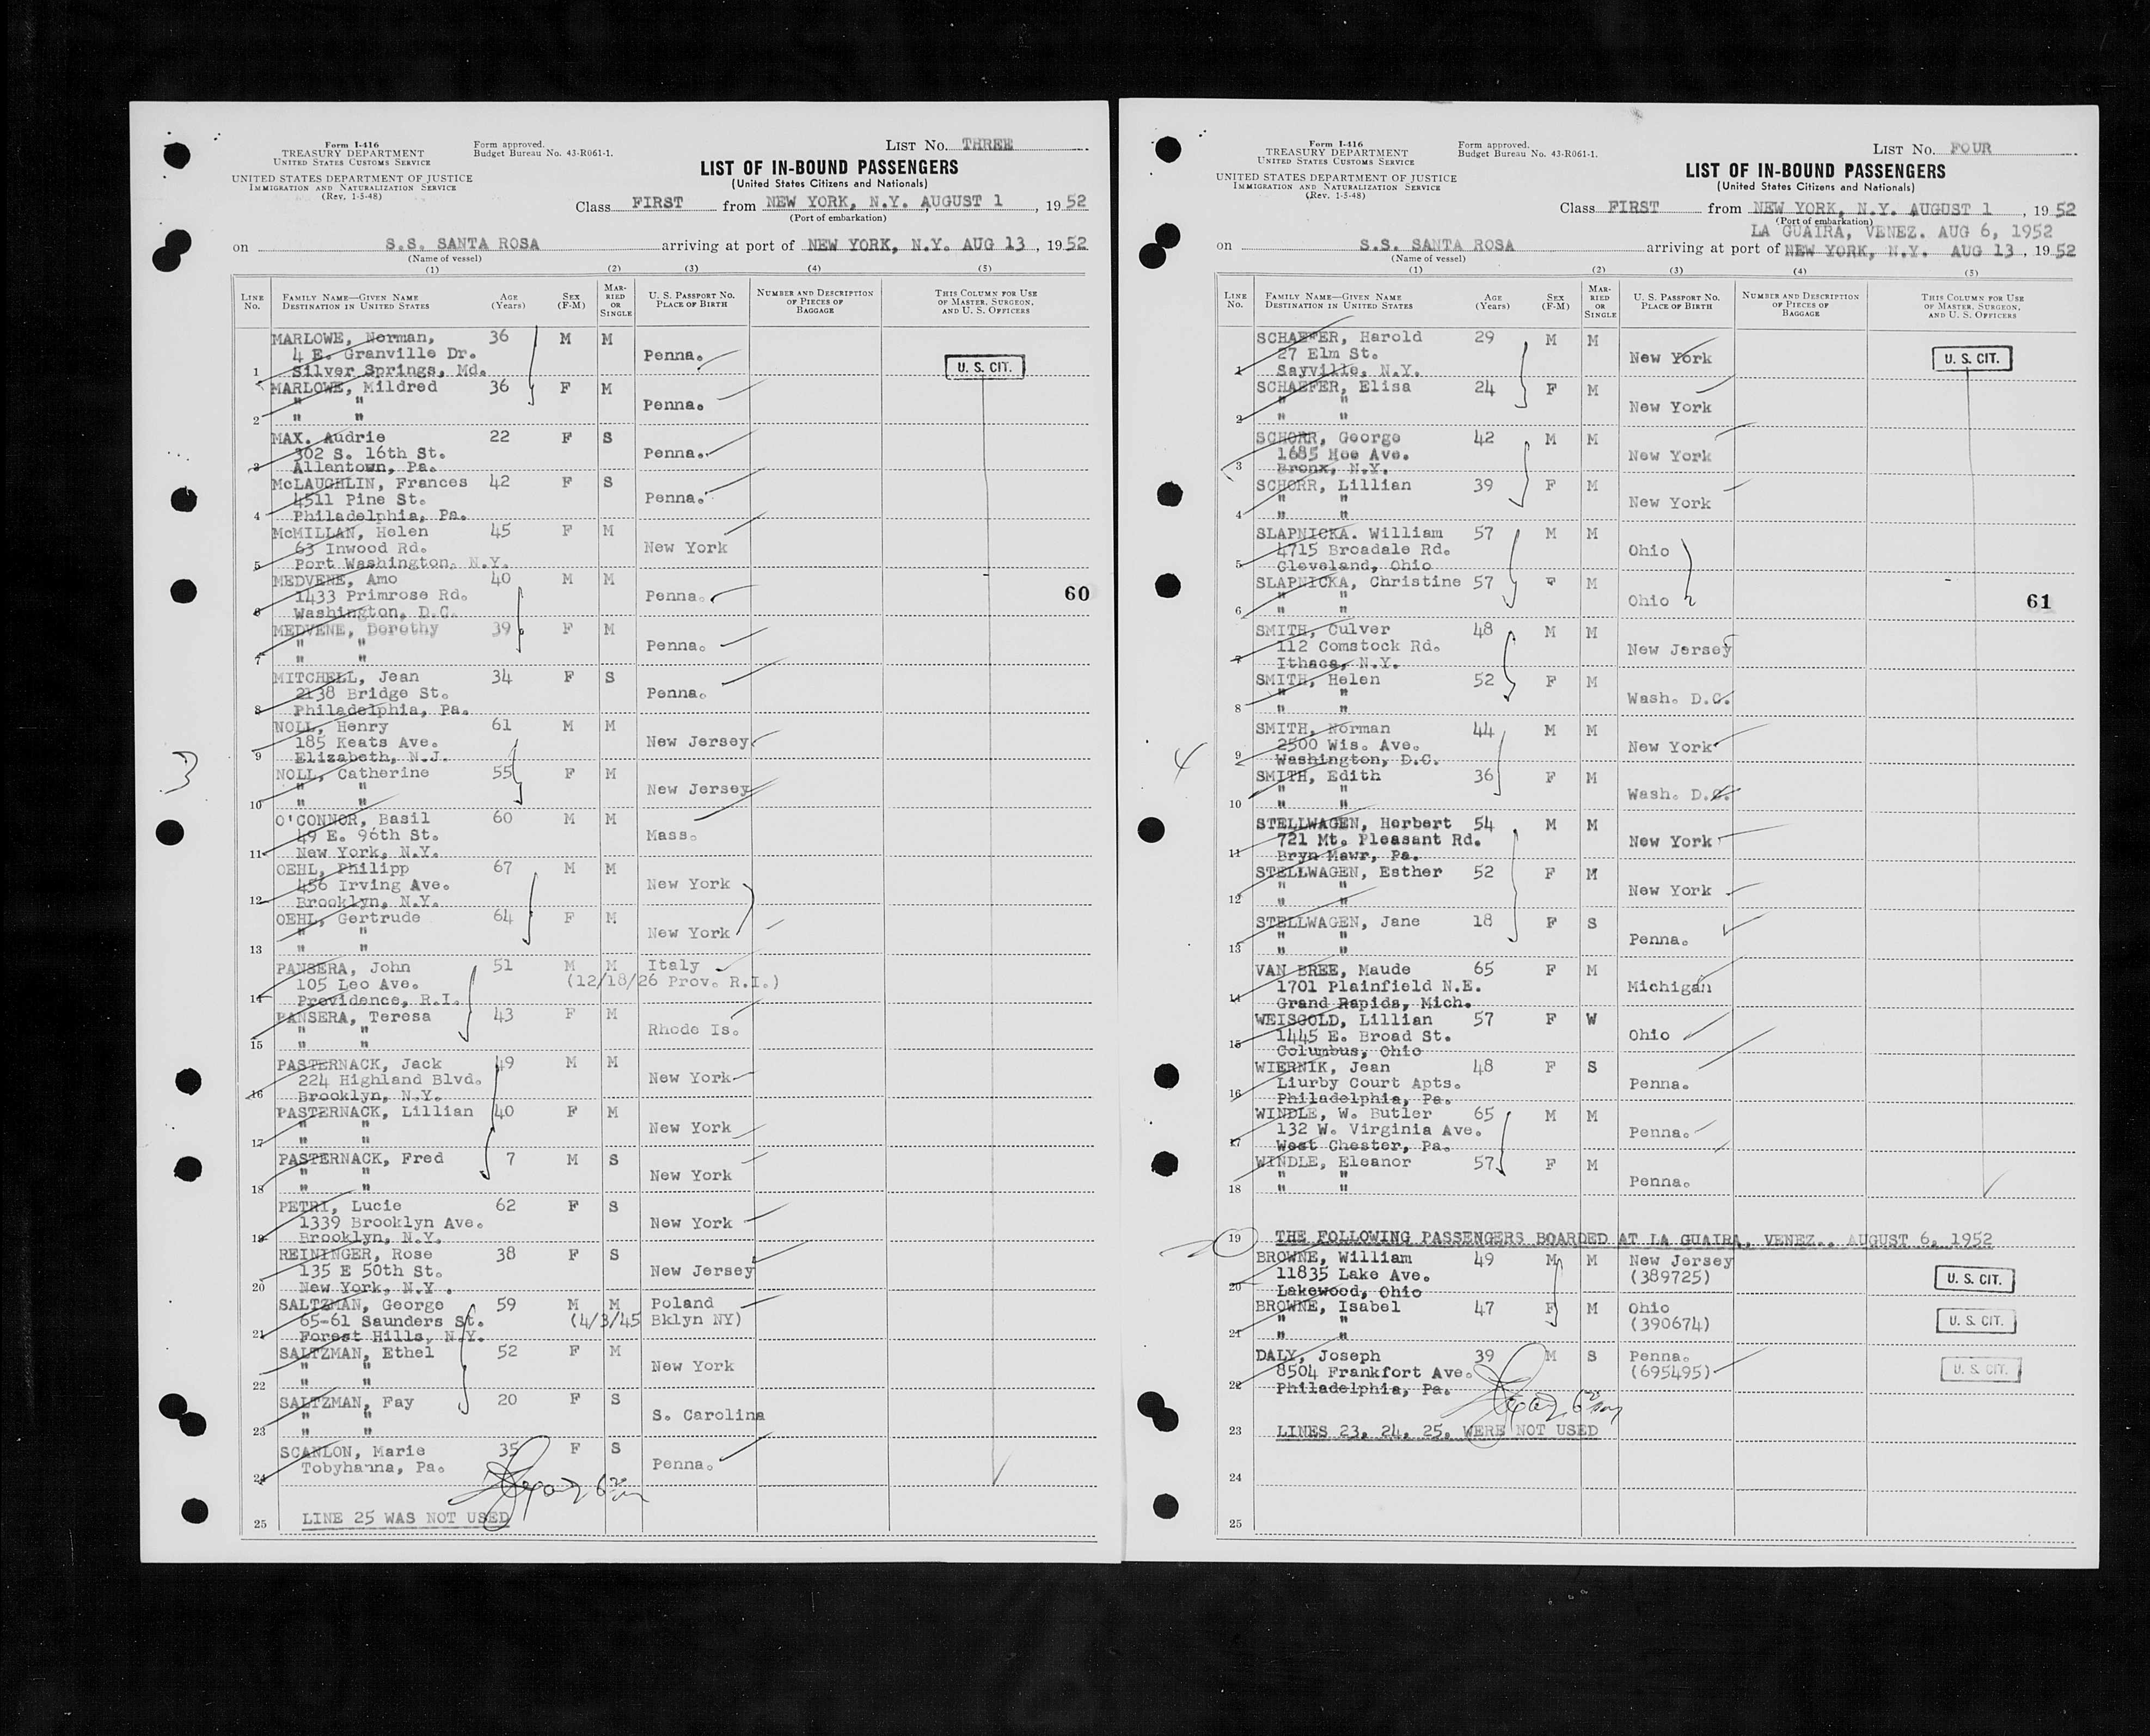 Form I-416
TREASURY DEPARTMENT
UNITED STATES CUSTOMS SERVICE
UNITED STATES DEPARTMENT OF JUSTICE
IMMIGRATION AND NATURALIZATION SERVICE
(Rev. 1-5-48)
Form approved.
Budget Bureau No. 43-R061-1.
LIST NO. THREE
LIST OF IN-BOUND PASSENGERS
(United States Citizens and Nationals)
Class FIRST from NEW YORK, N.Y. AUGUST 1, 1952
(Port of embarkation)
on S.S. SANTA ROSA arriving at port of NEW YORK, N.Y. AUG 13, 1952
(Name of vessel)
(1) (2) (3) (4) (5)
LINE NO. FAMILY NAME—GIVEN NAME DESTINATION IN UNITED STATES AGE (Years) SEX (F-M) MARRIED OR SINGLE U. S. PASSPORT NO. PLACE OF BIRTH NUMBER AND DESCRIPTION OF PIECES OF BAGGAGE THIS COLUMN FOR USE OF MASTER, SURGEON, AND U. S. OFFICERS
MARLOWE, Norman, 36 M M
4 E. Granville Dr. Penna.
1 Silver Springs, Md. U. S. CIT.
MARLOWE, Mildred 36 F M
" " Penna.
2 " "
MAX. Audrie 22 F S
302 S. 16th St. Penna.
3 Allentown, Pa.
McLAUGHLIN, Frances 42 F S
4511 Pine St. Penna.
4 Philadelphia, Pa.
McMILLAN, Helen 45 F M
63 Inwood Rd. New York
5 Port Washington, N.Y.
MEDVENE, Amo 40 M M
1433 Primrose Rd. Penna. 60
6 Washington, D.C.
MEDVENE, Dorothy 39 F M
" " Penna.
7 " "
MITCHELL, Jean 34 F S
2138 Bridge St. Penna.
8 Philadelphia, Pa.
NOLL, Henry 61 M M
185 Keats Ave. New Jersey
9 Elizabeth, N.J.
3
NOLL, Catherine 55 F M
" " New Jersey
10 " "
O'CONNOR, Basil 60 M M
49 E. 96th St. Mass.
11 New York, N.Y.
OEHL, Philipp 67 M M
456 Irving Ave. New York
12 Brooklyn, N.Y.
OEHL, Gertrude 64 F M
" " New York
13 " "
PANSERA, John 51 M M Italy
105 Leo Ave. (12/18/26 Prov. R.I.)
14 Providence, R.I.
PANSERA, Teresa 43 F M
" " Rhode Is.
15 " "
PASTERNACK, Jack 49 M M
224 Highland Blvd. New York
16 Brooklyn, N.Y.
PASTERNACK, Lillian 40 F M
" " New York
17 " "
PASTERNACK, Fred 7 M S
" " New York
18 " "
PETRI, Lucie 62 F S
1339 Brooklyn Ave. New York
19 Brooklyn, N.Y.
REININGER, Rose 38 F S
135 E 50th St. New Jersey
20 New York, N.Y.
SALTZMAN, George 59 M M Poland
65-61 Saunders St. (4/3/45 Bklyn NY)
21 Forest Hills, N.Y.
SALTZMAN, Ethel 52 F M
" " New York
22 " "
SALTZMAN, Fay 20 F S
" " S. Carolina
23 " "
SCANLON, Marie 35 F S
Tobyhanna, Pa. Penna.
24
25 LINE 25 WAS NOT USED
Form I-416
TREASURY DEPARTMENT
UNITED STATES CUSTOMS SERVICE
UNITED STATES DEPARTMENT OF JUSTICE
IMMIGRATION AND NATURALIZATION SERVICE
(Rev. 1-5-48)
Form approved.
Budget Bureau No. 43-R061-1.
LIST NO. FOUR
LIST OF IN-BOUND PASSENGERS
(United States Citizens and Nationals)
Class FIRST from NEW YORK, N.Y. AUGUST 1, 1952
(Port of embarkation)
LA GUAIRA, VENEZ. AUG 6, 1952
on S.S. SANTA ROSA arriving at port of NEW YORK, N.Y. AUG 13, 1952
(Name of vessel)
(1) (2) (3) (4) (5)
LINE NO. FAMILY NAME—GIVEN NAME DESTINATION IN UNITED STATES AGE (Years) SEX (F-M) MARRIED OR SINGLE U. S. PASSPORT NO. PLACE OF BIRTH NUMBER AND DESCRIPTION OF PIECES OF BAGGAGE THIS COLUMN FOR USE OF MASTER, SURGEON, AND U. S. OFFICERS
SCHAEFER, Harold 29 M M
27 Elm St. New York U. S. CIT.
1 Sayville, N.Y.
SCHAEFER, Elisa 24 F M
" " New York
2 " "
SCHORR, George 42 M M
1685 Hoe Ave. New York
3 Bronx, N.Y.
SCHORR, Lillian 39 F M
" " New York
4 " "
SLAPNICKA. William 57 M M
4715 Broadale Rd. Ohio
5 Cleveland, Ohio
SLAPNICKA, Christine 57 F M
" " Ohio 61
6 " "
SMITH, Culver 48 M M
112 Comstock Rd. New Jersey
7 Ithaca, N.Y.
SMITH, Helen 52 F M
" " Wash. D.C.
8 " "
SMITH, Norman 44 M M
2500 Wis. Ave. New York
9 Washington, D.C.
4
SMITH, Edith 36 F M
" " Wash. D.C.
10 " "
STELLWAGEN, Herbert 54 M M
721 Mt. Pleasant Rd. New York
11 Bryn Mawr, Pa.
STELLWAGEN, Esther 52 F M
" " New York
12 " "
STELLWAGEN, Jane 18 F S
" " Penna.
13 " "
VAN BREE, Maude 65 F M
1701 Plainfield N.E. Michigan
14 Grand Rapids, Mich.
WEISGOLD, Lillian 57 F W
1445 E. Broad St. Ohio
15 Columbus, Ohio
WIERNIK, Jean 48 F S
Liurby Court Apts. Penna.
16 Philadelphia, Pa.
WINDLE, W. Butler 65 M M
132 W. Virginia Ave. Penna.
17 West Chester, Pa.
WINDLE, Eleanor 57 F M
" " Penna.
18 " "
19 THE FOLLOWING PASSENGERS BOARDED AT LA GUAIRA, VENEZ., AUGUST 6, 1952
BROWNE, William 49 M M New Jersey
11835 Lake Ave. (389725) U. S. CIT.
20 Lakewood, Ohio
BROWNE, Isabel 47 F M Ohio
" " (390674) U. S. CIT.
21 " "
DALY, Joseph 39 M S Penna.
8504 Frankfort Ave. (695495) U. S. CIT.
22 Philadelphia, Pa.
23 LINES 23, 24, 25, WERE NOT USED
24
25